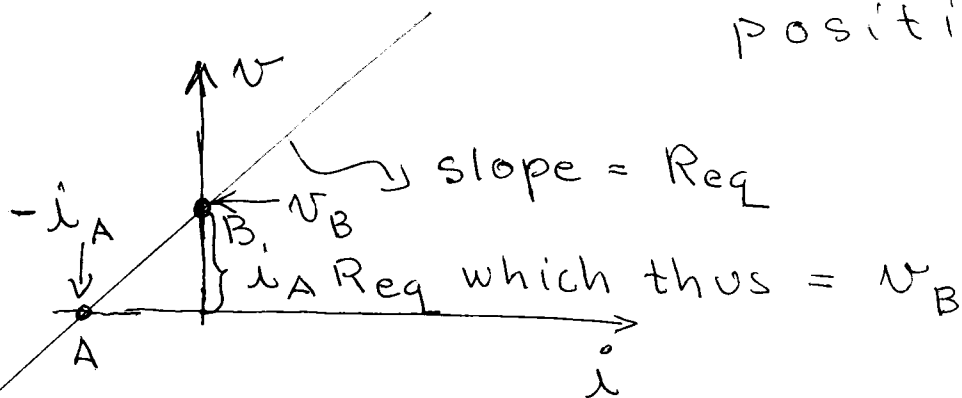 positi
v
slope = Req
-i_A
v_B
B
i_A Req which thus = v_B
A
i